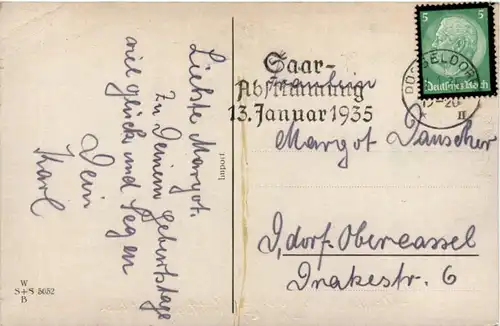 Liebste Margot.
Zu Deinem Geburtstage
viel Glück und Segen
Dein
Karl
W
S+S 5652
B
Import
Saar-
Abstimmung
13. Januar 1935
DÜSSELDORF
5 5
Deutsches Reich
Fräulein
Margot Danscher
D,dorf-Obercassel
Drakestr. 6